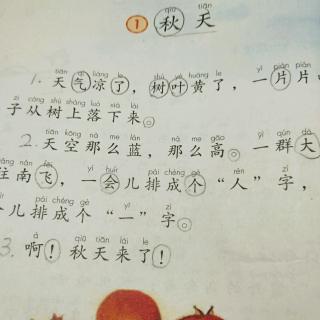 qiū tiān
1 秋 天
tiān qì liáng le shù yè huáng le yí piàn piàn
1. 天气凉了，树叶黄了，一片片
zi cóng shù shàng luò xià lái
子从树上落下来。
tiān kōng nà me lán nà me gāo yì qún dà
2. 天空那么蓝，那么高。一群大
nán fēi huìr pái chéng gè rén zì
往南飞，一会儿排成个“人”字，
pái chéng gè yī zì
儿排成个“一”字。
ā qiū tiān lái le
3. 啊！秋天来了！